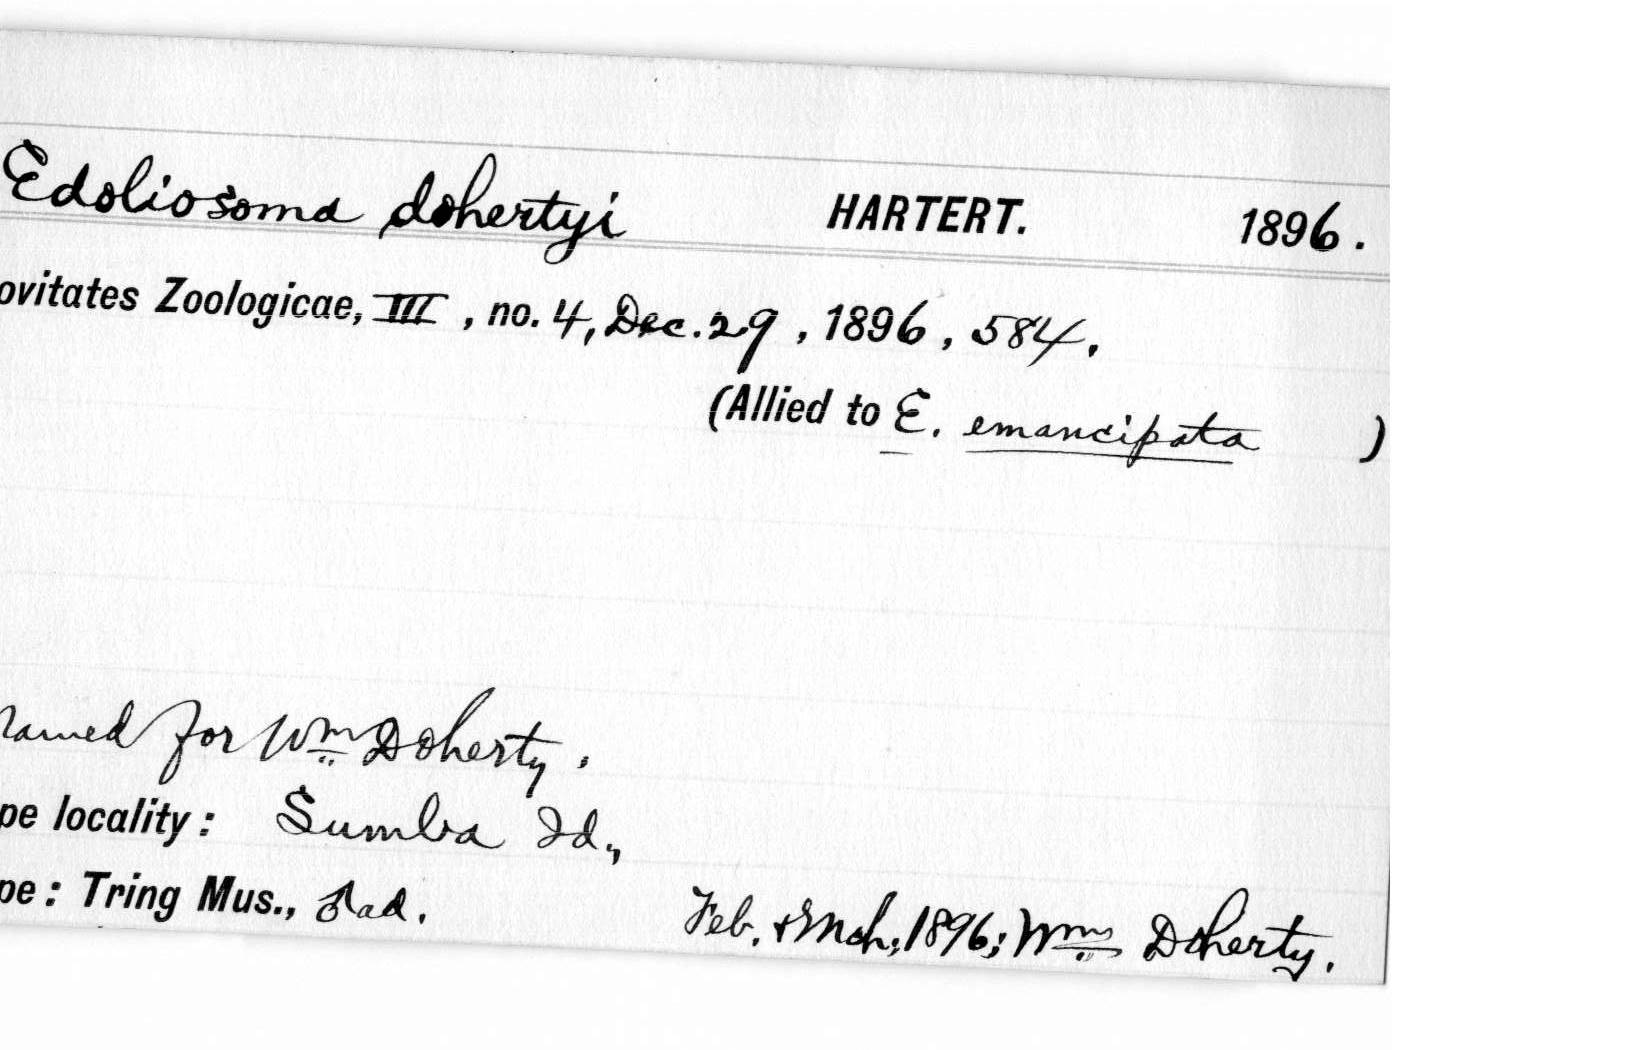 Edoliosoma dohertyi HARTERT. 1896.
ovitates Zoologicae, III, no. 4, Dec. 29, 1896, 584.
(Allied to E. emancipata )
Named for Wm Doherty.
pe locality: Sumba Id.,
pe: Tring Mus., ad. Feb. & Mch., 1896; Wm Doherty.